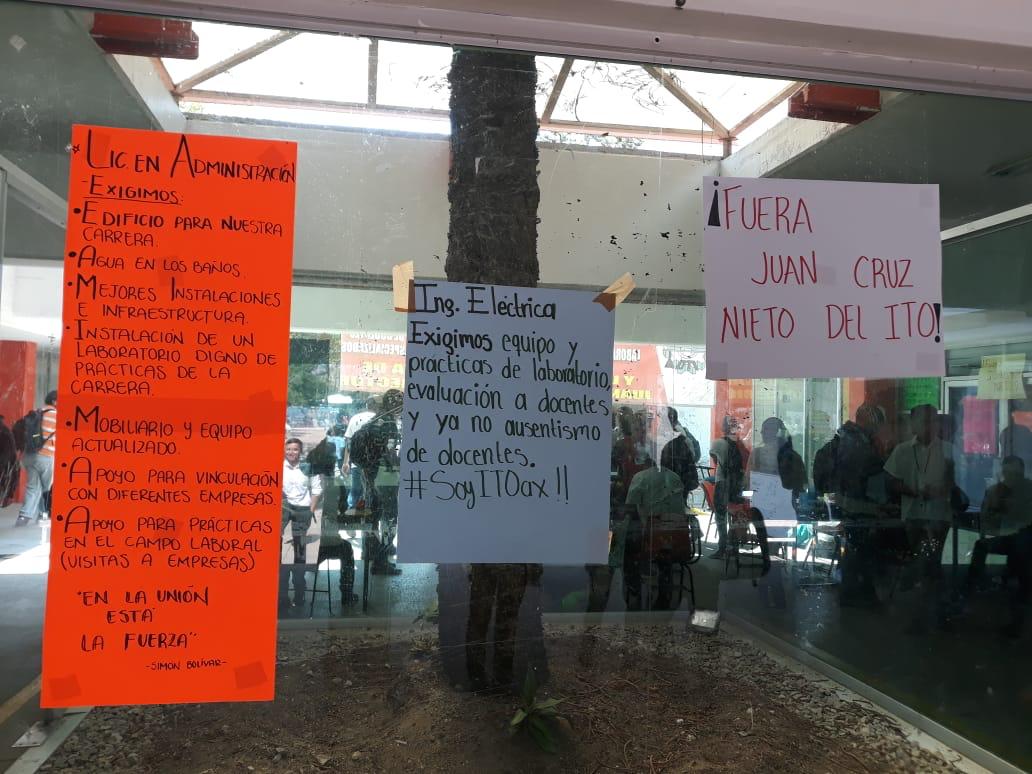 LIC. EN ADMINISTRACIÓN
- EXIGIMOS:
• EDIFICIO PARA NUESTRA
CARRERA.
• AGUA EN LOS BAÑOS.
• MEJORES INSTALACIONES
E INFRAESTRUCTURA.
• INSTALACIÓN DE UN
LABORATORIO DIGNO DE
PRÁCTICAS DE LA
CARRERA.
• MOBILIARIO Y EQUIPO
ACTUALIZADO.
• APOYO PARA VINCULACIÓN
CON DIFERENTES EMPRESAS.
• APOYO PARA PRÁCTICAS
EN EL CAMPO LABORAL
(VISITAS A EMPRESAS)
"EN LA UNIÓN
ESTÁ
LA FUERZA"
-SIMÓN BOLÍVAR-
Ing. Eléctrica
Exigimos equipo y
prácticas de laboratorio,
evaluación a docentes
y ya no ausentismo
de docentes.
#SoyITOax!!
¡FUERA
JUAN CRUZ
NIETO DEL ITO!